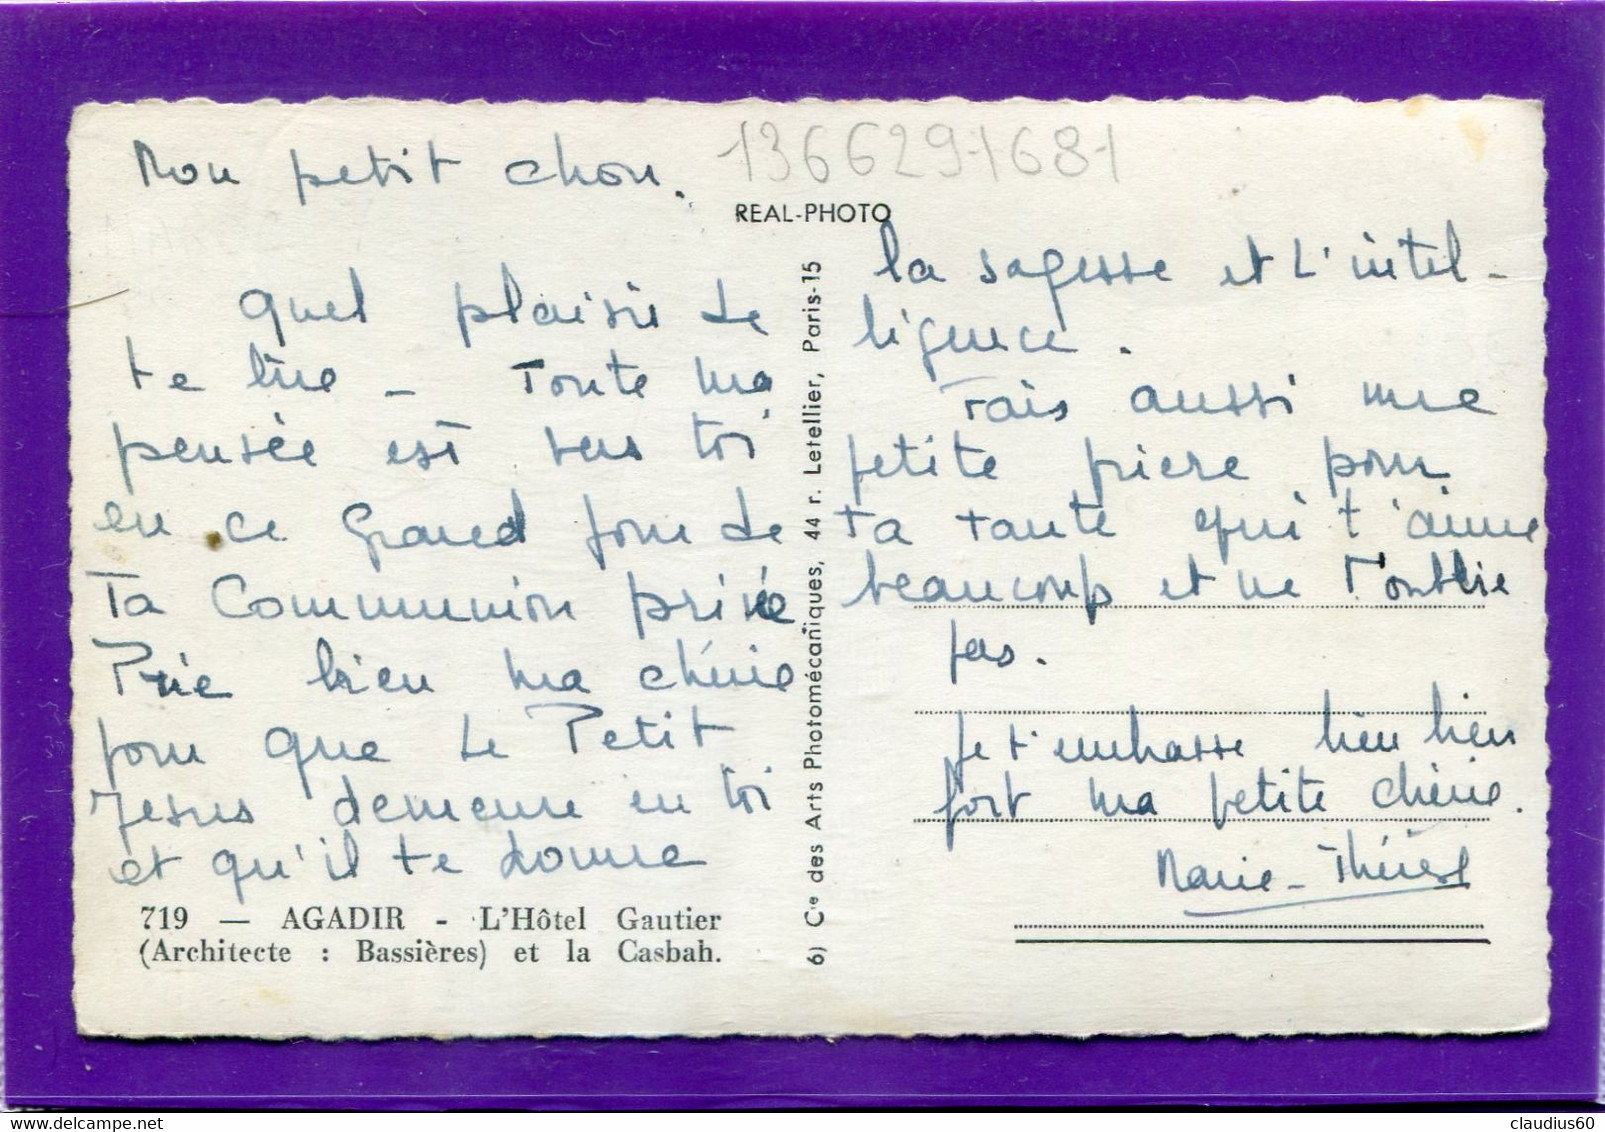 Mon petit chou.
1366291681
REAL-PHOTO
Quel plaisir de
te lire - Toute ma
pensée est vers toi
en ce Grand jour de
Ta Communion privée
Prie bien ma chérie
pour que Le Petit
Jesus demeure en toi
et qu'il te donne
719 — AGADIR - L'Hôtel Gautier
(Architecte : Bassières) et la Casbah.
6) Cie des Arts Photomécaniques, 44 r. Letellier, Paris-15
la sagesse et L'intel-
ligence.
Fais aussi une
petite prière pour
ta tante qui t'aime
beaucoup et ne t'oublie
pas.
Je t'embrasse bien bien
fort ma petite chérie.
Marie-Thérèse
claudius60